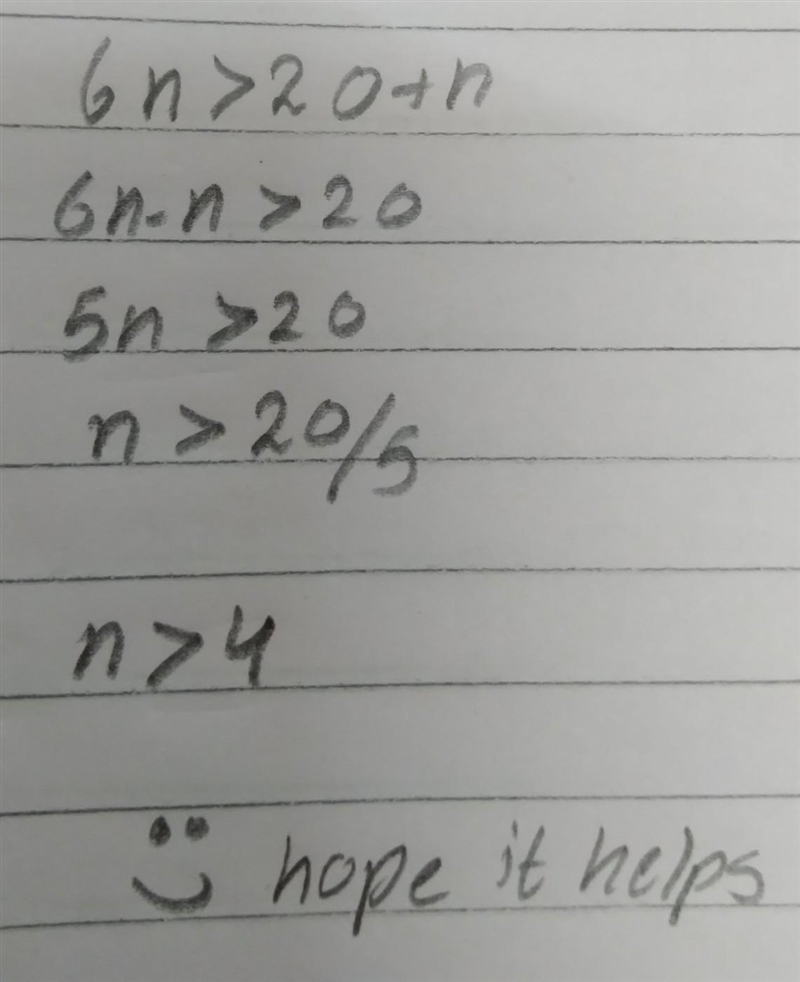 6n>20+n
6n-n >20
5n >20
n >20/5
n>4
hope it helps